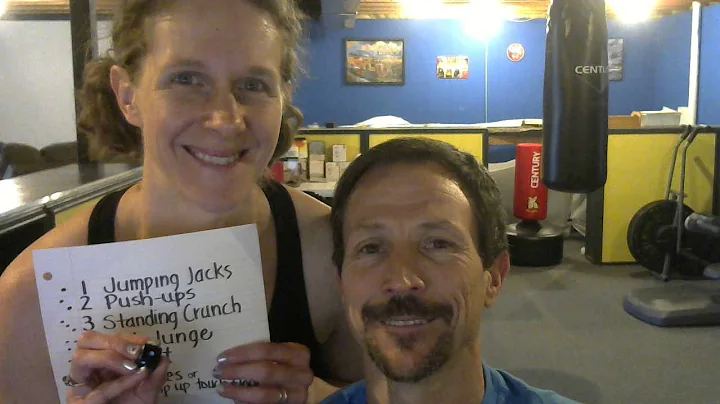 1 Jumping Jacks
2 Push-ups
3 Standing Crunch
Lunge
or
up touch
CENTURY